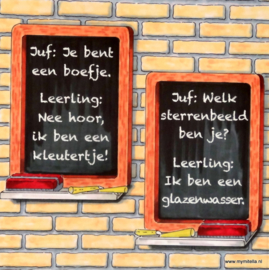 Juf: Je bent
een boefje.
Leerling:
Nee hoor,
ik ben een
kleutertje!
Juf: Welk
sterrenbeeld
ben je?
Leerling:
Ik ben een
glazenwasser.
www.mymitella.nl